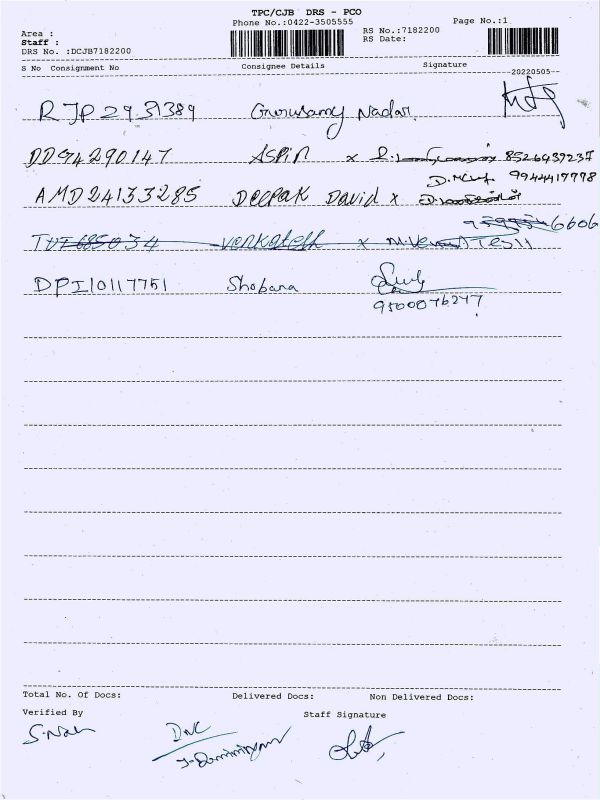 TPC/CJB DRS - PCO
Phone No.:0422-3505555
Page No.:1
Area :
Staff :
DRS No. :DCJB7182200
RS No.:7182200
RS Date:
S No Consignment No Consignee Details Signature
20220505
RJP2931389 Gurusamy Nadar
DDG4290147 ASPIN x 8526939237
AMD24133285 DEEPAK David x 9944417778
6606
venkatesh x
DPI10117751 Shobana
9500076277
Total No. Of Docs: Delivered Docs: Non Delivered Docs:
Verified By Staff Signature